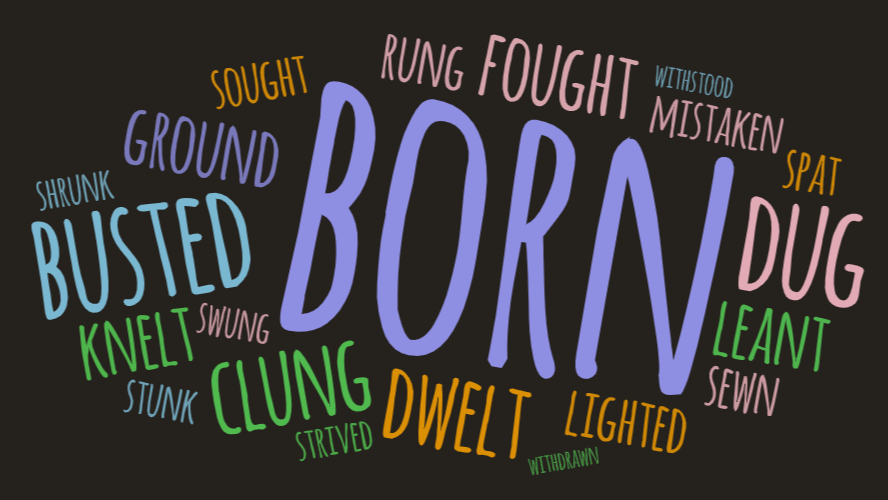 RUNG
FOUGHT
WITHSTOOD
SOUGHT
MISTAKEN
GROUND
BORN
SPAT
SHRUNK
BUSTED
DUG
KNELT
SWUNG
LEANT
CLUNG
STUNK
DWELT
LIGHTED
SEWN
STRIVED
WITHDRAWN